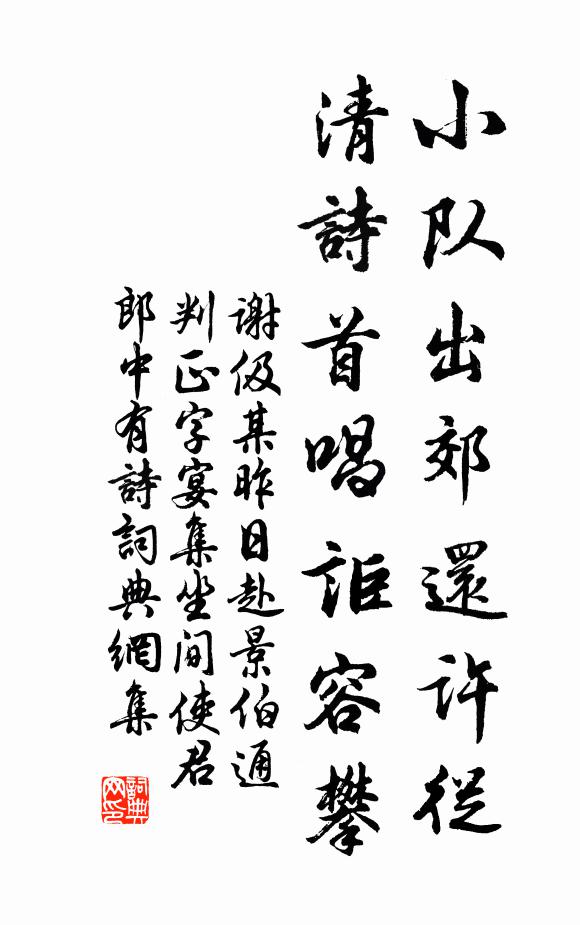 小队出郊還許從
清詩首唱詎容攀
謝伋某昨日赴景伯通
判正字宴集坐间使君
郎中有詩詞典網集
詞典网印